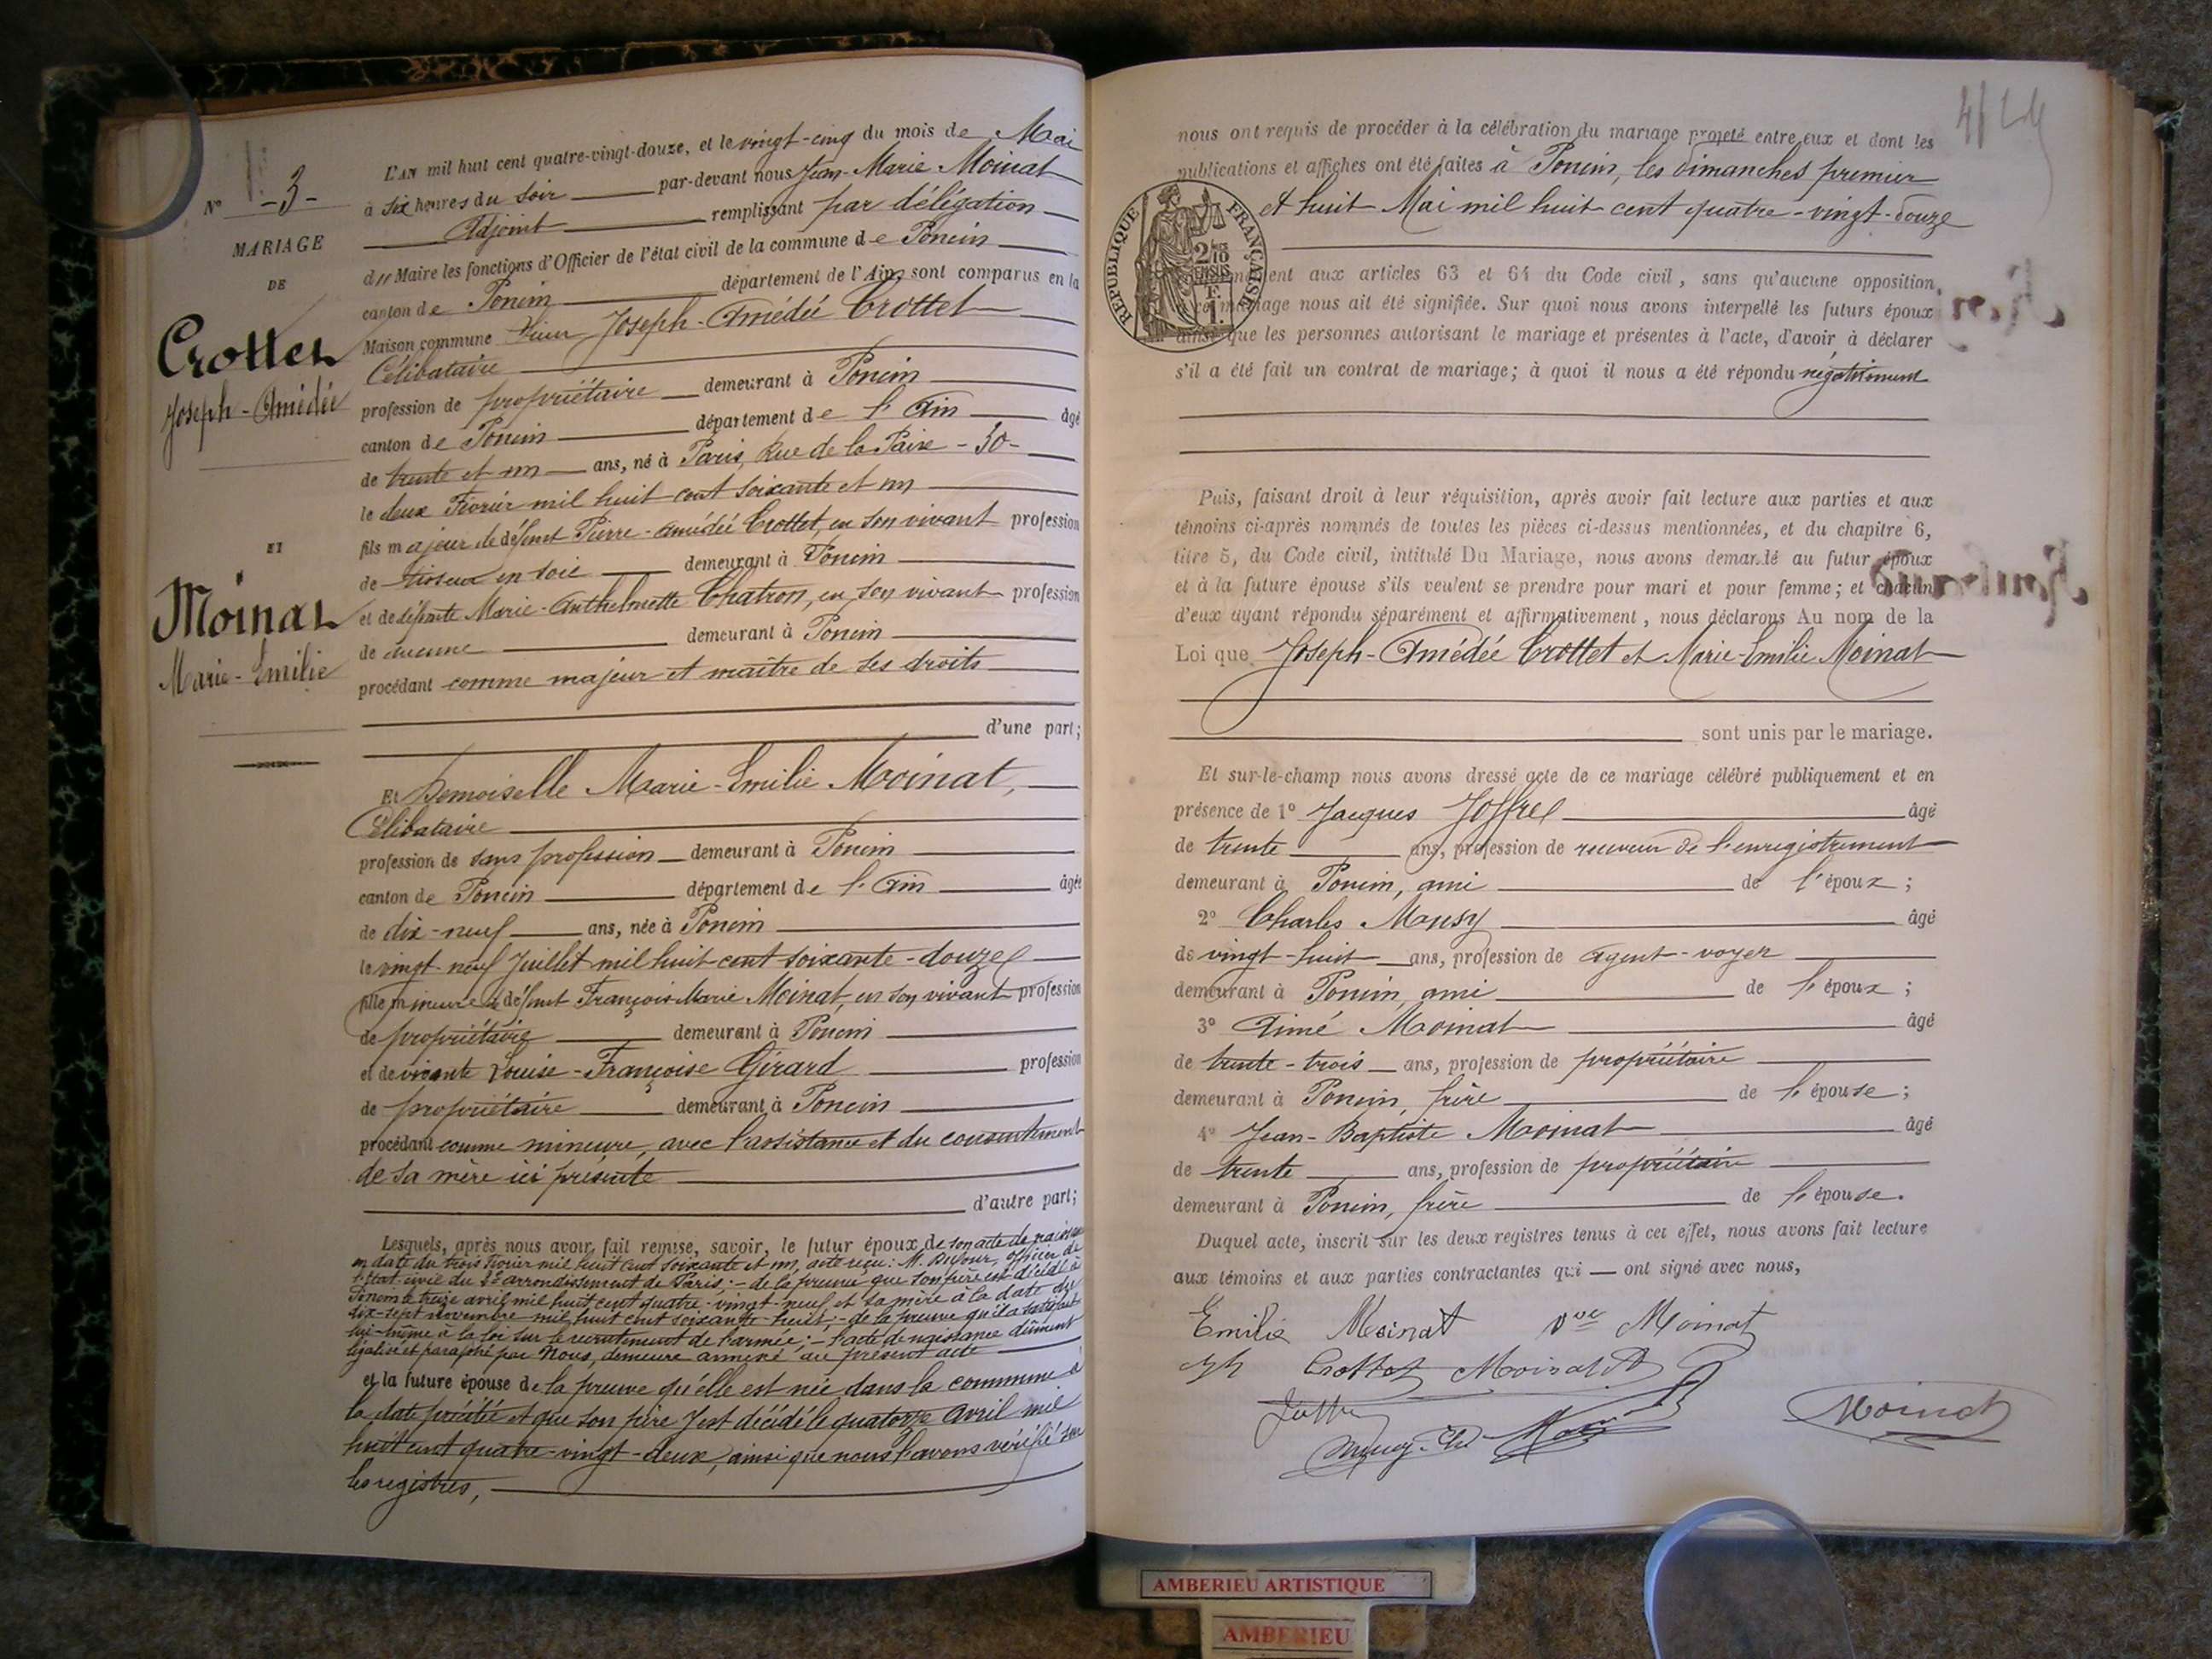 L'AN mil huit cent quatre-vingt-douze, et le vingt-cinq du mois de Mai
à six heures du soir par-devant nous Jean-Marie Moinat
Adjoint remplissant par délégation
du Maire les fonctions d'Officier de l'état civil de la commune de Poncin
canton de Poncin département de l'Ain, sont comparus en la
Maison commune Sieur Joseph-Amédée Crottet
Célibataire
profession de propriétaire demeurant à Poncin
canton de Poncin département de l'Ain âgé
de trente et un ans, né à Paris, Rue de la Paix - 30 -
le deux Février mil huit cent soixante et un
fils majeur de défunt Pierre-Amédée Crottet, en son vivant profession
de tisseur en soie demeurant à Poncin
et de défunte Marie-Anthelmette Chatron, en son vivant profession
de aucune demeurant à Poncin
procédant comme majeur et maître de ses droits
d'une part;
Et Demoiselle Marie-Emilie Moinat,
Célibataire
profession de sans profession demeurant à Poncin
canton de Poncin département de l'Ain âgée
de dix-neuf ans, née à Poncin
le vingt-neuf Juillet mil huit cent soixante-douze
fille mineure de défunt François-Marie Moinat, en son vivant profession
de propriétaire demeurant à Poncin
et de vivante Louise-Françoise Girard profession
de propriétaire demeurant à Poncin
procédant comme mineure, avec l'assistance et du consentement
de sa mère ici présente
d'autre part;
Lesquels, après nous avoir fait remise, savoir, le futur époux de son acte de naissance
en date du trois Février mil huit cent soixante et un, acte reçu: M. Officier de
l'état civil du 2e arrondissement de Paris; - de la preuve que son père est décédé à
Poncin le treize avril mil huit cent quatre-vingt-neuf et sa mère à la date du
dix-sept novembre mil huit cent soixante-huit; - de la preuve qu'il a satisfait
lui-même à la loi sur le recrutement de l'armée; - l'acte de naissance dûment
légalisé et paraphé par Nous, demeure annexé au présent acte
et la future épouse de la preuve qu'elle est née dans la commune à
la date précitée et que son père y est décédé le quatorze avril mil
huit cent quatre-vingt-deux, ainsi que nous l'avons vérifié sur
les registres,
N° -3-
MARIAGE
DE
Crottet
Joseph-Amédée
ET
Moinat
Marie-Emilie
nous ont requis de procéder à la célébration du mariage projeté entre eux et dont les
publications et affiches ont été faites à Poncin, les dimanches premier
et huit Mai mil huit cent quatre-vingt-douze
RÉPUBLIQUE FRANÇAISE
aux articles 63 et 64 du Code civil, sans qu'aucune opposition
mariage nous ait été signifiée. Sur quoi nous avons interpellé les futurs époux
ainsi que les personnes autorisant le mariage et présentes à l'acte, d'avoir à déclarer
s'il a été fait un contrat de mariage; à quoi il nous a été répondu négativement
Puis, faisant droit à leur réquisition, après avoir fait lecture aux parties et aux
témoins ci-après nommés de toutes les pièces ci-dessus mentionnées, et du chapitre 6,
titre 5, du Code civil, intitulé Du Mariage, nous avons demandé au futur époux
et à la future épouse s'ils veulent se prendre pour mari et pour femme; et chacun
d'eux ayant répondu séparément et affirmativement, nous déclarons Au nom de la
Loi que Joseph-Amédée Crottet et Marie-Emilie Moinat
sont unis par le mariage.
Et sur-le-champ nous avons dressé acte de ce mariage célébré publiquement et en
présence de 1° Jacques Joffre âgé
de trente ans, profession de receveur de l'enregistrement
demeurant à Poncin, ami de l'époux;
2° Charles Mousy âgé
de vingt-huit ans, profession de agent-voyer
demeurant à Poncin, ami de l'époux;
3° Aimé Moinat âgé
de trente-trois ans, profession de propriétaire
demeurant à Poncin, frère de l'épouse;
4° Jean-Baptiste Moinat âgé
de trente ans, profession de propriétaire
demeurant à Poncin, frère de l'épouse.
Duquel acte, inscrit sur les deux registres tenus à cet effet, nous avons fait lecture
aux témoins et aux parties contractantes qui ont signé avec nous,
Emilie Moinat Vve Moinat
Crottet Moinat
Joffre
Moinat
AMBERIEU ARTISTIQUE
AMBERIEU